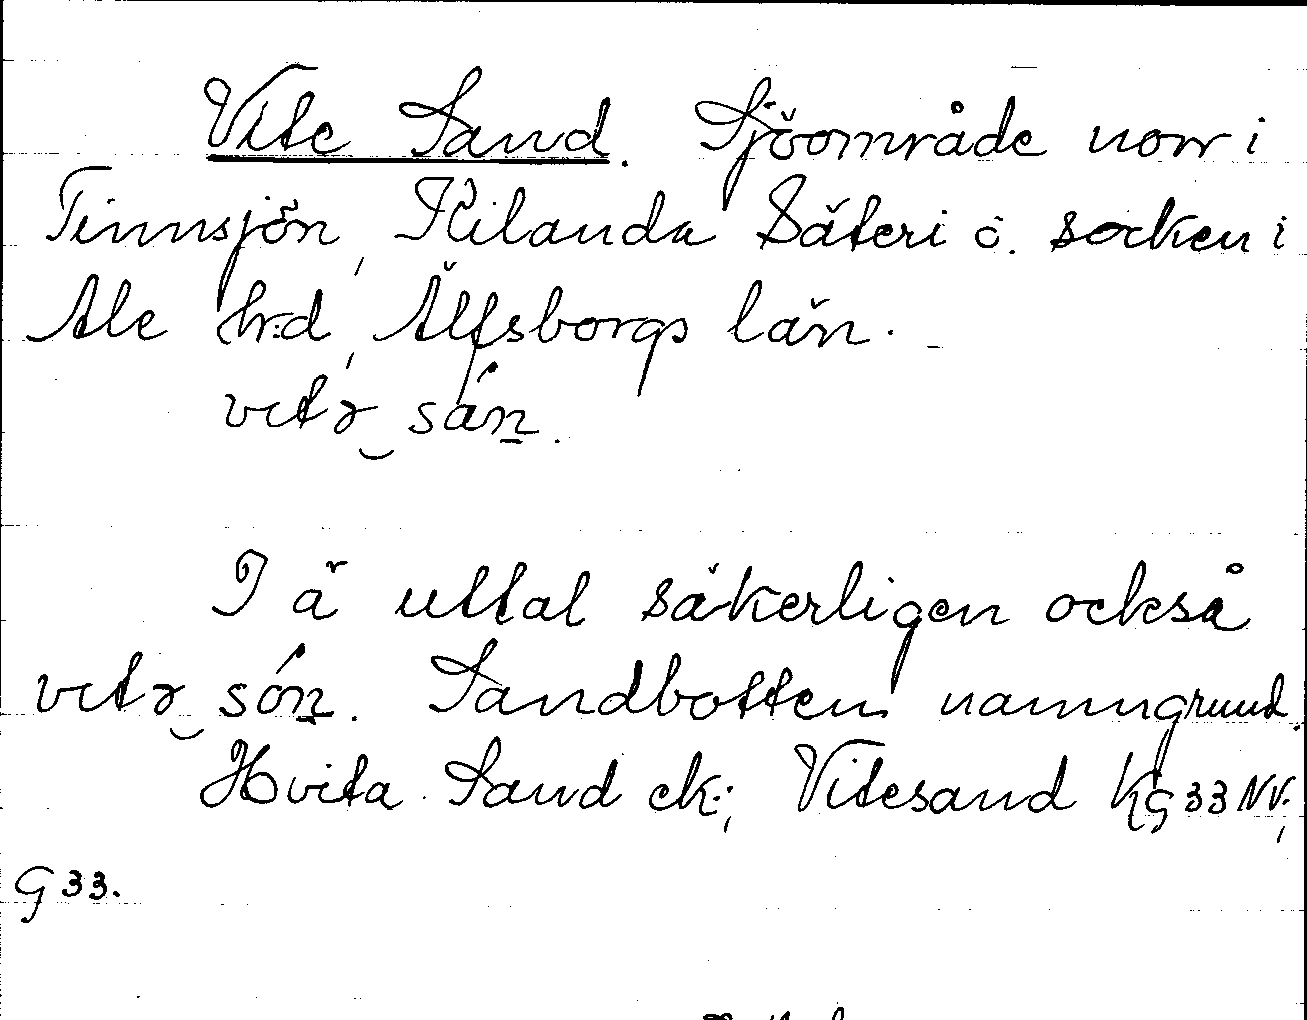 Vite Sand. Sjöområde norr i
Tinnsjön, Kilanda Säteri o. socken i
Ale hrd, Älfsborgs län.
vitə‿sán̲.
I ä uttal säkerligen också
vitə‿són̲. Sandbotten namngrund.
Hvita Sand ek.; Vitesand KG33NV;
G33.